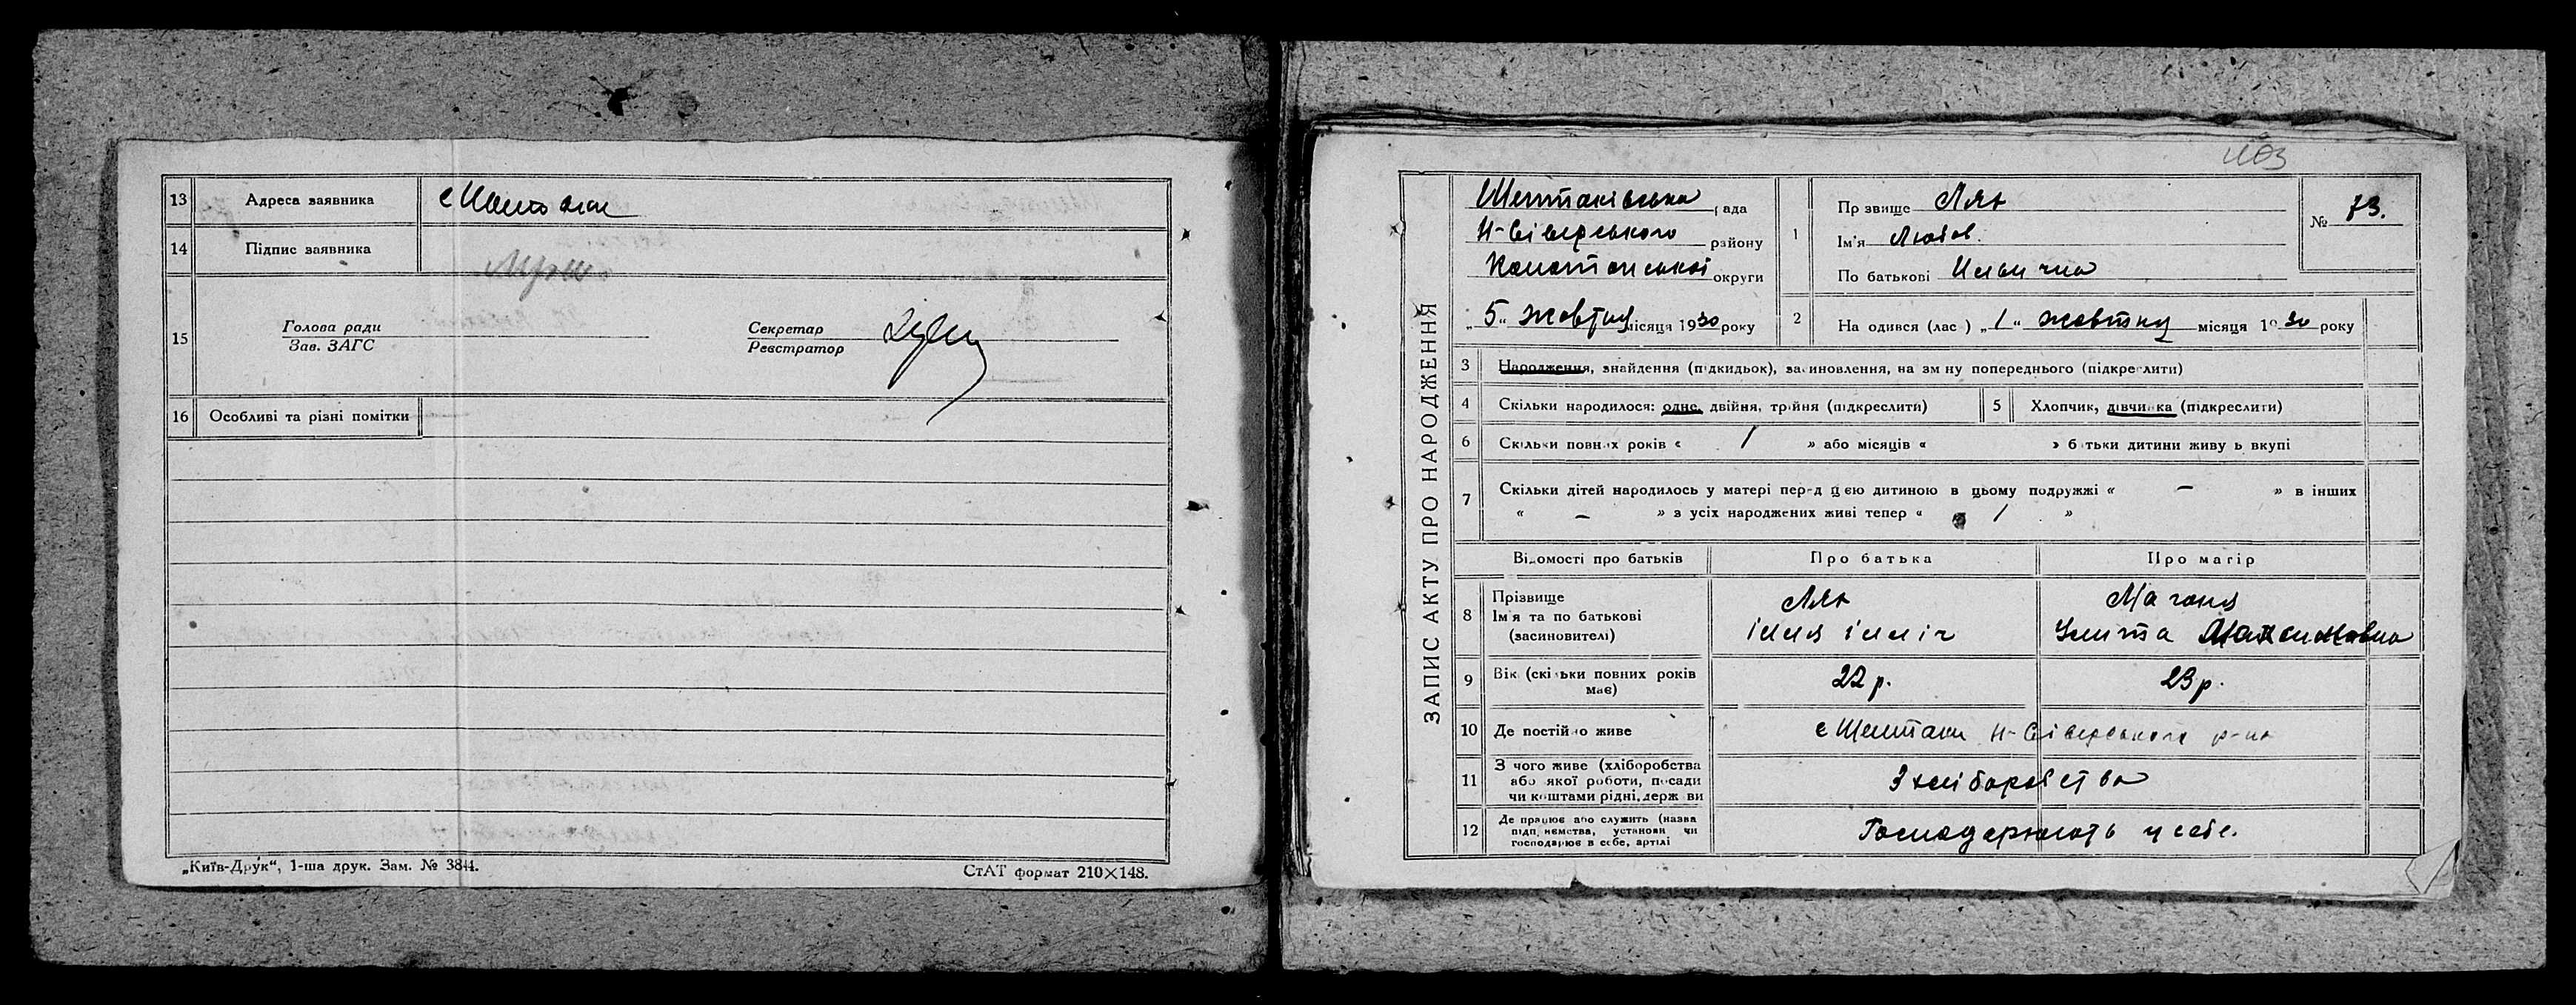 13 Адреса заявника
14 Підпис заявника
15 Голова ради
Зав. ЗАГС
Секретар
Реєстратор
16 Особливі та різні помітки
„Київ-Друк“, 1-ша друк. Зам. № 3844.
СтАТ формат 210×148.
403
ЗАПИС АКТУ ПРО НАРОДЖЕННЯ
Шептаківська рада
Н-Сіверського району
Конотопської округи
„5“ жовтня місяця 1930 року
№ 73.
1 Прізвище Лях
Ім'я Любов.
По батькові Ильична
2 На одився (лас ) „1“ жовтня місяця 1930 року
3 Народження, знайдення (підкидьок), засиновлення, на зміну попереднього (підкреслити)
4 Скільки народилося: одне, двійня, трійня (підкреслити)
5 Хлопчик, дівчинка (підкреслити)
6 Скільки повних років « 1 » або місяців « » батьки дитини живуть вкупі
7 Скільки дітей народилось у матері перед цією дитиною в цьому подружжі « – » в інших
« – » з усіх народжених живі тепер « 1 »
Відомості про батьків
Про батька
Про матір
8 Прізвище
Ім'я та по батькові
(засиновителі)
Лях
ілля ілліч
Улита Максимовна
9 Вік (скільки повних років має)
22 р.
23 р.
10 Де постійно живе
с Шептаки Н-Сіверського р-на
11 З чого живе (хліборобства
або якої роботи, посади
чи коштами рідні, держ ви
З хліборобства
12 Де працює або служить (назва
підприємства, установи чи
господарює в себе, артілі
Господарюють у себе.